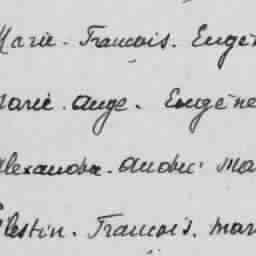 Marie. Francois. Eugèn
Marie. ange. Eugène
Alexandre. andré. Ma
Célestin. Francois. mar